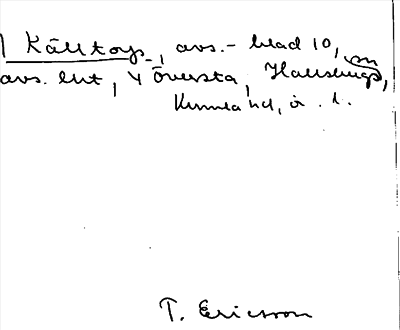 Källtorp, avs. - blad 10,
avs. lut, V Översta, Hallsbergs sn,
Kumla hd, ö. l.
T. Ericsson